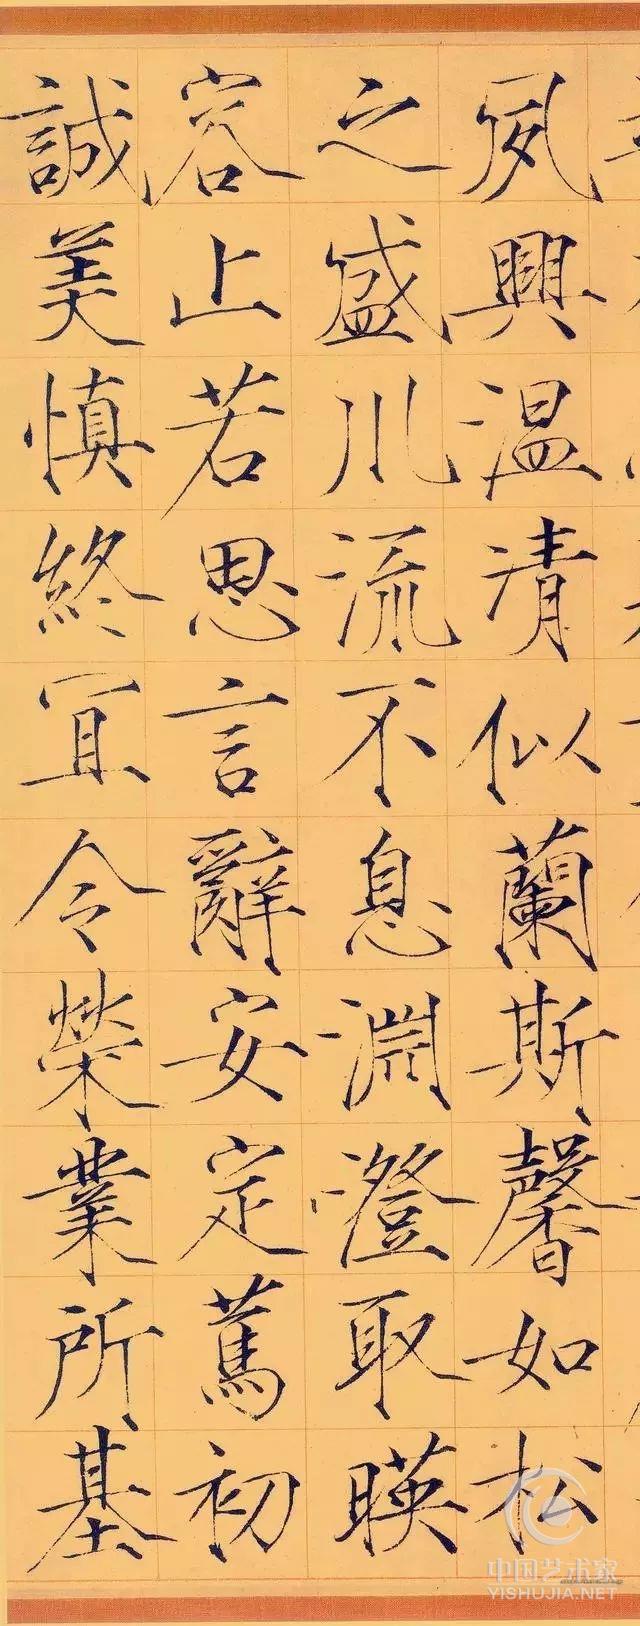 夙興温凊似蘭斯馨如松
之盛川流不息淵澄取暎
容止若思言辭安定篤初
誠美慎終宜令榮業所基
中国艺术家
YISHUJIA.NET